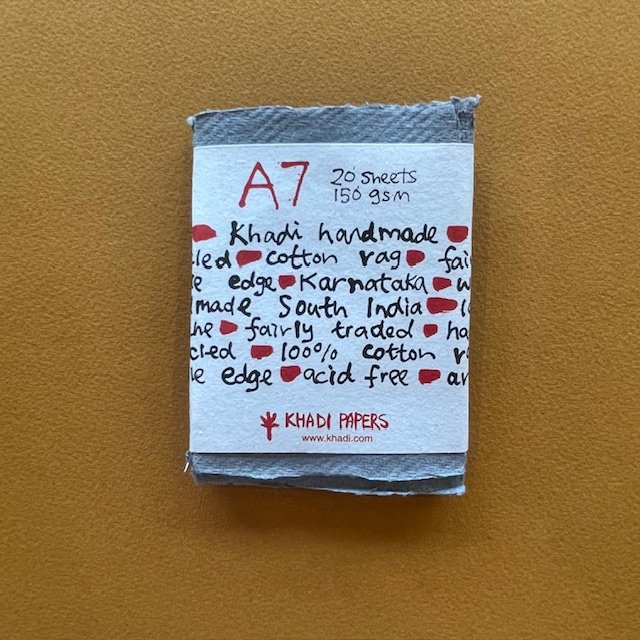 A7 20 sheets
150 gsm
Khadi handmade
cotton rag
edge Karnataka
made South India
fairly traded
100% cotton
edge acid free
KHADI PAPERS
www.khadi.com